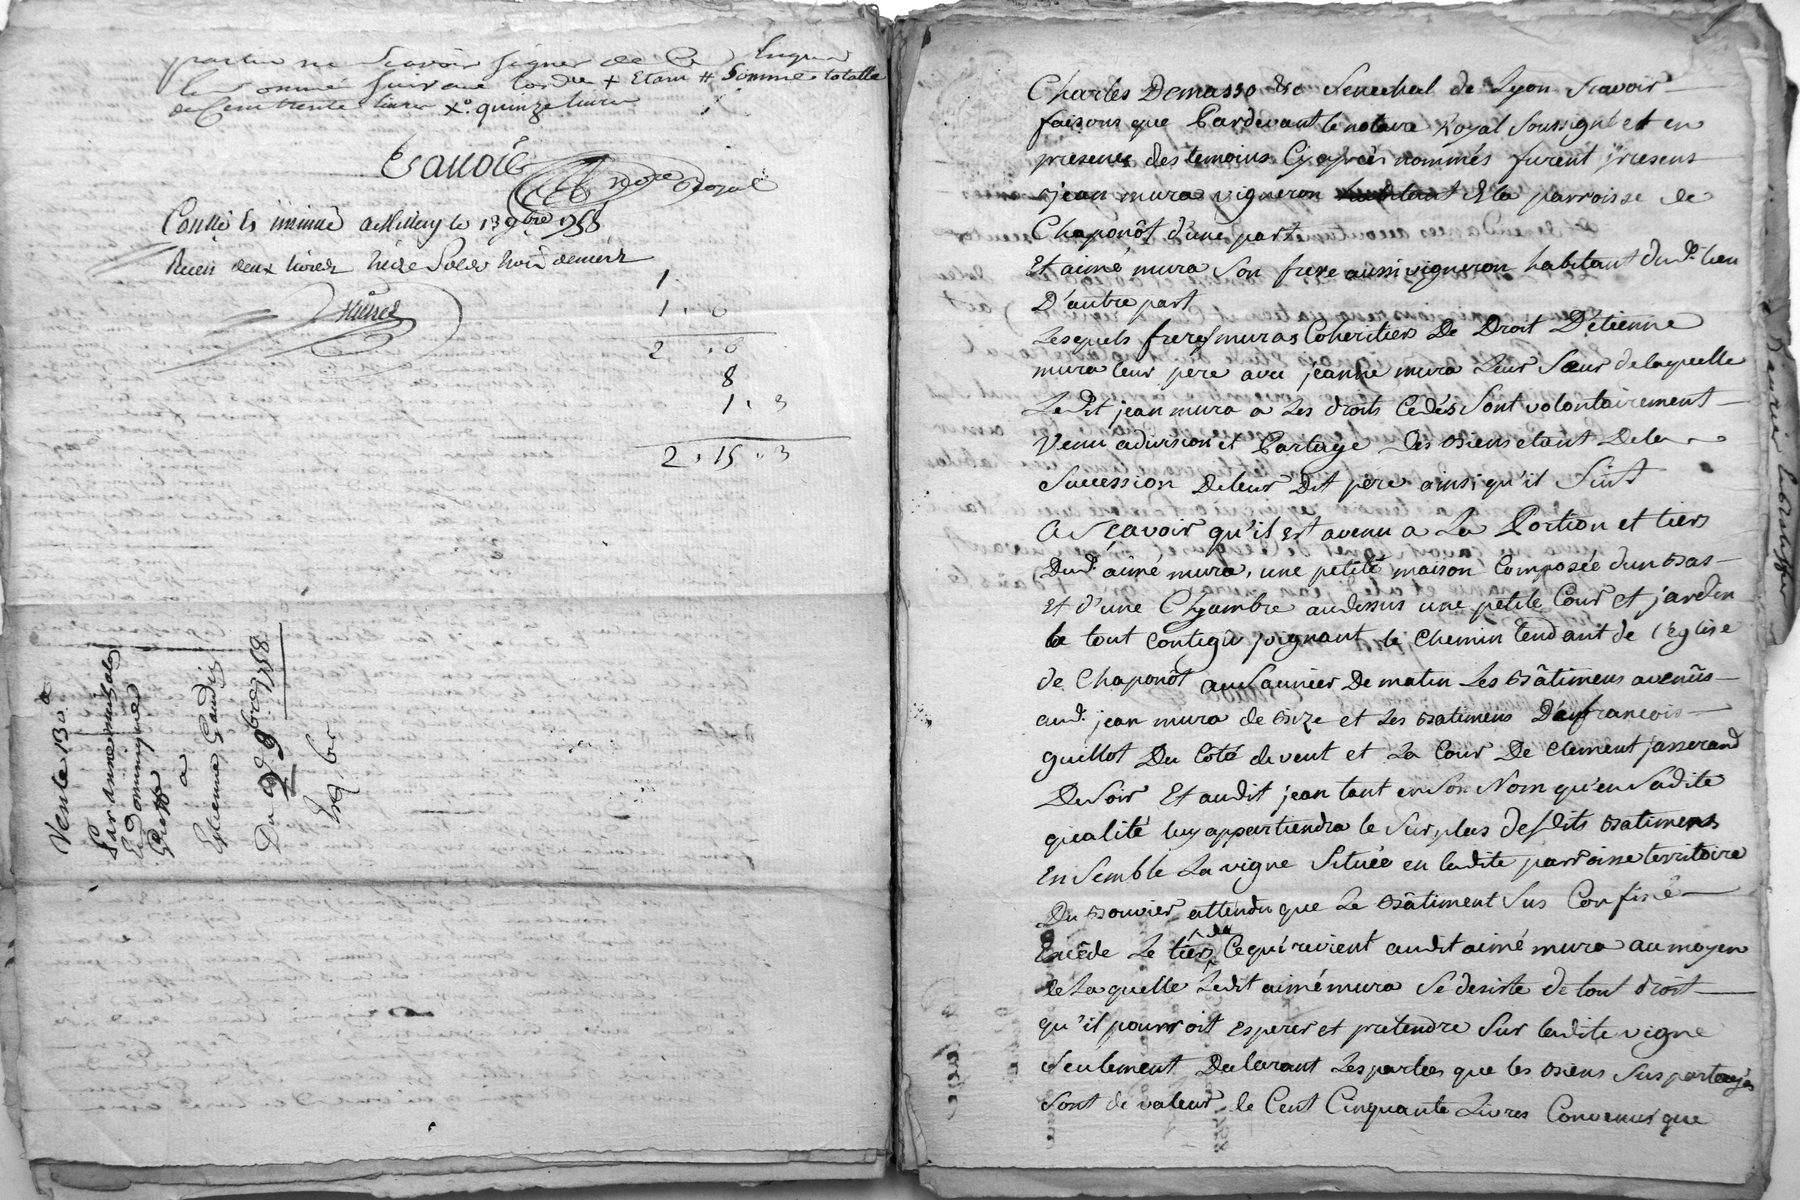 partie ne Scavoir signer de ce Enquis
suivant + Etam # Somme totalle
de Cent trente livres X.e quinze livres
no.re Royal
Controllé Es insinué a Millery le 13 9bre 1758
Receu deux livres seize Solds trois deniers
1
1 . 6
2 . 6
8
1 . 3
2 . 15 . 3
Vente 130.#
Par anne
Et Dominique
a
Estienne Gaudin
Du 2.e 9bre 1758
Charles Demasso &c Senechal de Lyon Scavoir
faisons que Pardevant le notaire Royal Soussigné et en
presence des temoins Cy apres nommés furent presens
jean mura vigneron habitant De la parroisse de
Chaponôt d'une part
Et aimé mura Son frere aussi vigneron habitant Dud.t lieu
D'autre part
Lesquels freres muras Coheritiers De Droit D'etienne
mura leur pere avec jeanne mura Leur Sœur de laquelle
Ledit jean mura a Les droits Cedés Sont volontairement
Venu a division et Partage Des Biens etant De la
Succession De leur Dit pere ainsi qu'il Suit
A Sçavoir qu'il est avenu a La Portion et tiers
Dud.t aimé mura, une petite maison Composée d'un Bas
Et d'une Chambre au dessus une petite Cour et jardin
le tout contigu joignant le Chemin tendant de l'eglise
de Chaponôt au Saunier De matin Les Bâtimens avenûs
aud.t jean mura de Bize et Les Batimens D'enfrancois
guillot Du Côté de vent et La Cour De Clement jasserand
De Soir Et audit jean tant en Son Nom qu'en Sadite
qualité luy appartiendra le Surplus desdits Batimens
Ensemble La vigne Située en ladite parroisse territoire
Du Bouvier attendu que Le Bâtiment Sus Confiné
Excède Le tiers de Ce qui revient audit aimé mura au moyen
de Laquelle Ledit aimé mura Se desiste de tout droit
qu'il pourroit esperer et pretendre Sur ladite vigne
Seulement Declarant Les parties que les Biens Sus partagés
Sont de valeur de Cent Cinquante Livres Convenus que